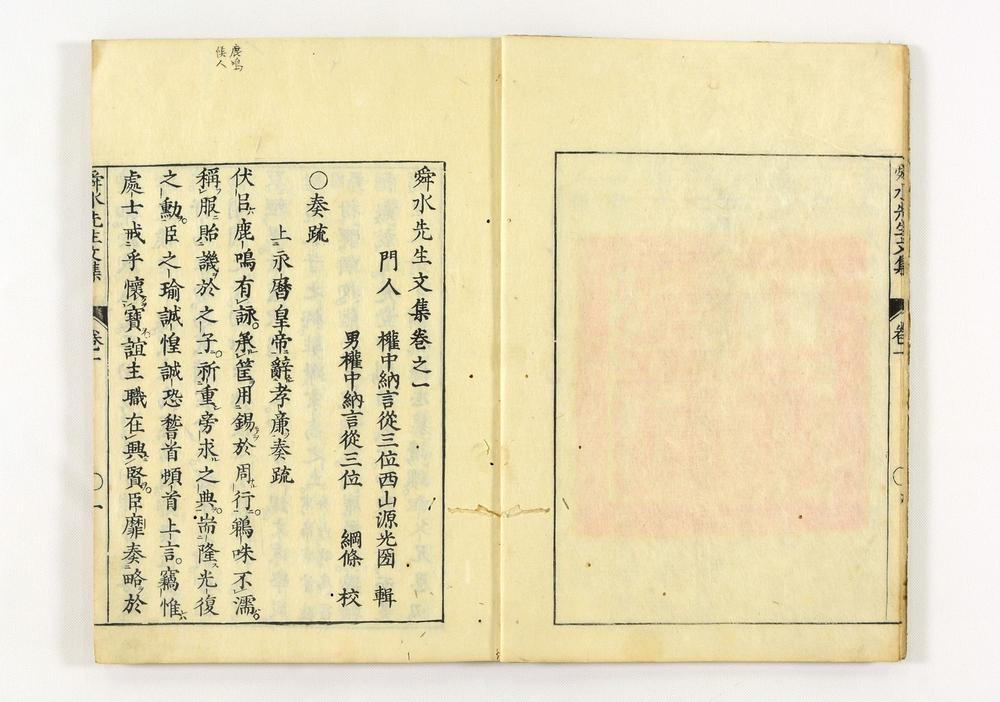 舜水先生文集
卷一
鹿鳴
候人
舜水先生文集卷之一
門人 權中納言從三位西山源光圀 輯
男權中納言從三位 綱條 校
○奏疏
上永曆皇帝辭孝廉奏疏
伏㠯鹿鳴有詠承筐用錫於周行鵜咮不濡
稱服貽譏於之子祈重旁求之典耑隆光復
之勳臣之瑜誠惶誠恐稽首頓首上言竊惟
處士戒乎懷寶誼主職在興賢臣靡奏略於
舜水先生文集
卷一
一